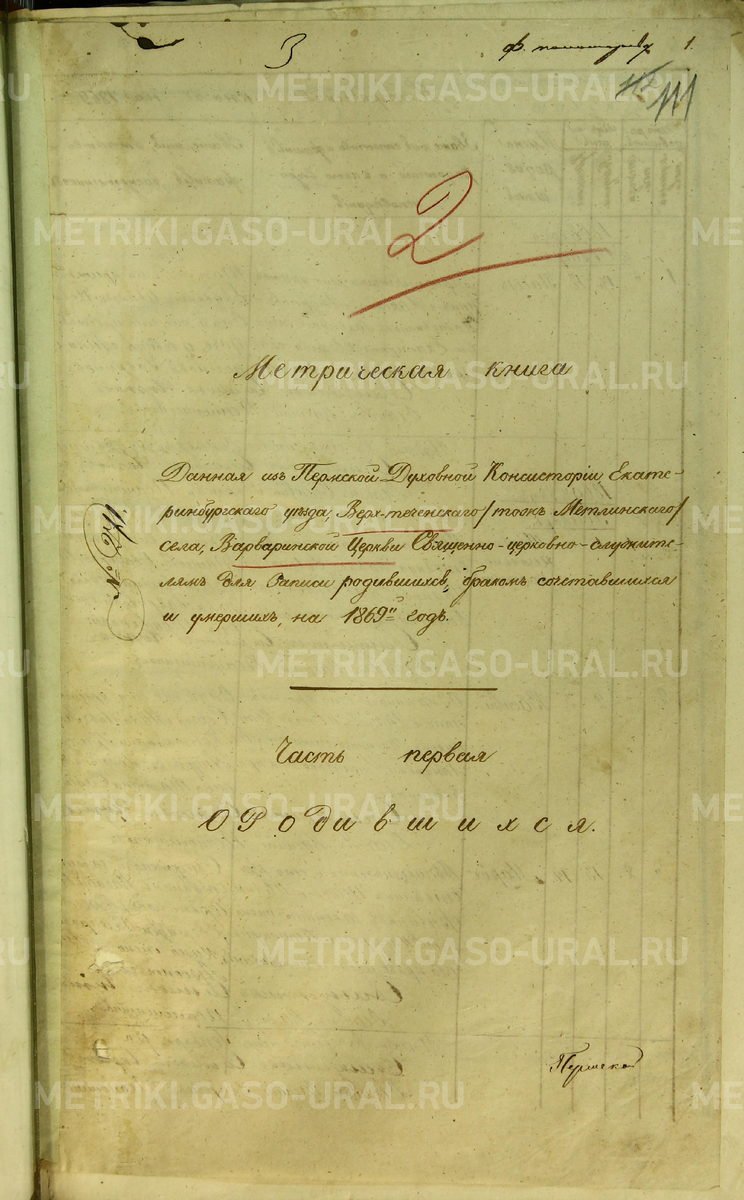 3
1.
111
2
Метрическая книга
Данная изъ Пермской Духовной Консисторіи, Екате-
ринбургскаго уѣзда, Верх-теченскаго /тожъ Метлинскаго/
села, Варваринской Церкви Священно-церковно-служите-
лямъ для записи родившихся, бракомъ сочетавшихся
и умершихъ, на 1869й годъ.
Часть первая
О Родившихся.
METRIKI.GASO-URAL.RU